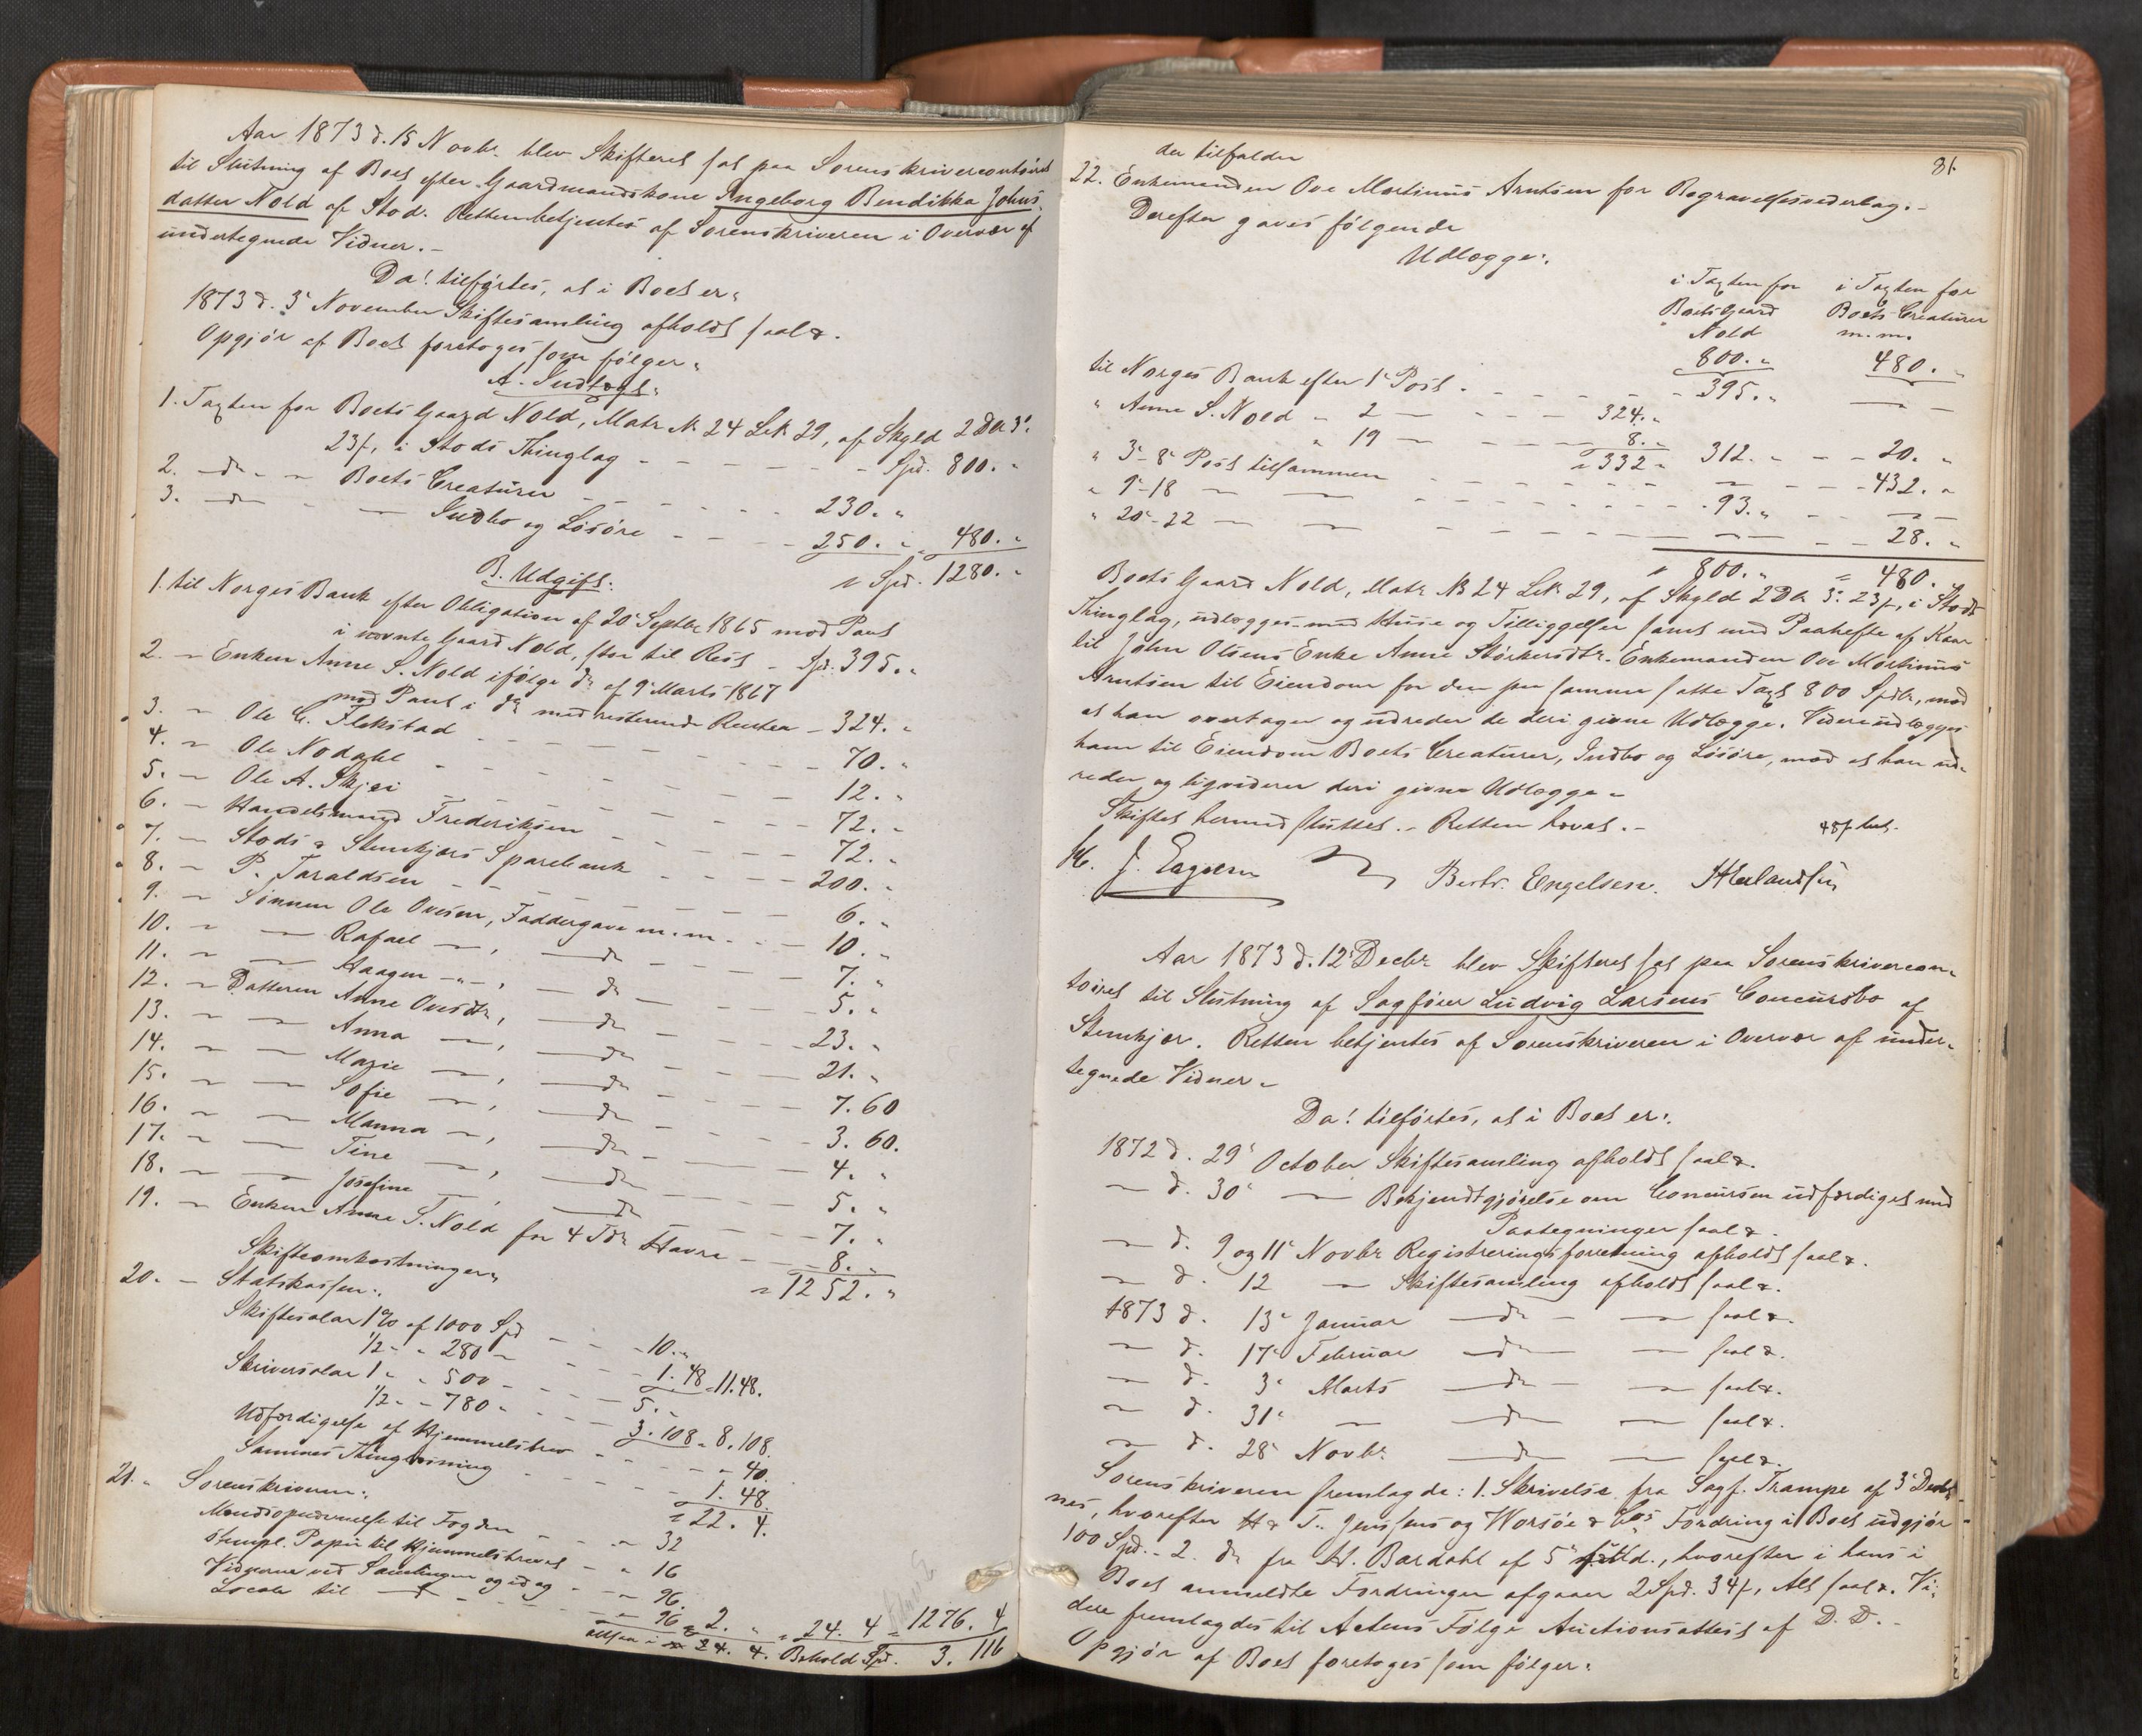 Aar 1873 d. 15 Novbr. blev Skifteret sat paa Sorenskrivercontoiret
til Slutning af Boet efter Gaardmandskone Ingeborg Bendikka Johns-
datter Nold af Stod. Retten betjentes af Sorenskriveren i Overvær af
undertegnede Vidner.-
Da! tilførtes, at i Boet er:
1873 d. 3' November Skiftesamling afholdt saal&.
Opgjør af Boet foretoges som følger:
A. Indtægt:
1. Taxten for Boets Gaard Nold, Matr N. 24 Lb. 29, af Skyld 2 Dlr 3'.
23 s, i Stods Thinglag - - - Spd. 800. "
2. - do - - Boets Creaturer - - - 230. "
3. - do - - Indbo og Løsøre - - - 250. " 480. "
" Spd. 1280. "
B. Udgift:
1. til Norges Bank efter Obligation af 20' Septbr 1865 mod Pant
i nævnte Gaard Nold, stor til Rest - Spd. 395. "
2. - Enken Anne S. Nold ifølge do af 9' Marts 1867
med Pant i do med resterende Renter - 324. "
3. - Ole C. Flekstad - - - 70. "
4. - Ole Nodahl - - - 12. "
5. - Ole A. Skjei - - - 72. "
6. - Handelsmand Frederiksen - - - 72. "
7. - Stods & Stenkjærs Sparebank - - - 200. "
8. - P. Taraldsen - - - 6. "
9. - Sønnen Ole Ovesen, Faddergave m.m. - - 10. "
10. - - Rafael -, - do - - - 7. "
11. - - Haagen -, - do - - - 5. "
12. - Datteren Anne Ovesdtr, - do - - - 23. "
13. - - Anna -, - do - - - 21. "
14. - - Mazie -, - do - - - 7. 60
15. - - Sofie -, - do - - - 3. 60.
16. - - Manna -, - do - - - 4. "
17. - - Tine -, - do - - - 5. "
18. - - Josefine -, - do - - - 7. "
19. - Enken Anne S. Nold for 4 Tdr Havre - 8. "
" 1252. "
Skifteomkostninger:
20. - Statskassen:
Skiftesalar 1% af 1000 Spd - - - 10. "
1/2 - - 280 - - - 1. 48 " 11. 48.
Skriversalar 1 - - 500 - - - 5. "
1/2 - - 780 - - - 3. 108 " 8. 108.
Udfærdigelse af Hjemmelsbrev - - - 40.
Sammes Thinglæsning - - - 1. 48.
" 22. 4.
21. - Sorenskriveren:
til Fogden - - " 32
Stempl. Papir til Hjemmelsbrevet - - " 16
Vidnerne ved Samlingen og idag - - " 96.
Locale til - do - - - " 96 " 2. " " 24. 4 " 1276. 4
altsaa i 24. 4. Behold Spd. 3. 116
81.
der tilfalder
22. Enkemanden Ove Martinus Arntsen for Begravelsesvederlag.-
Derefter gaves følgende
Udlægge:
i Taxten for i Taxten for
Boets Gaard Boets Creaturer
Nold m.m.
800. " 480. "
til Norges Bank efter 1' Post - - - 395. " - -
" Anne S. Nold - 2 - - - 324. "
" 19 - - - 8. "
" 332 " 312. " - - 20. "
" 3'-8' Post tilsammen - - - - - - 432. "
" 9'-18 - - - - 93. " - -
" 20'-22 - - - - - - 28. "
" 800. " " 480. "
Boets Gaard Nold, Matr N 24 Lb 29, af Skyld 2 Dlr 3'. 23 s, i Stods
Thinglag, udlægges med Huse og Tilliggelser samt med Paahefte af Kaar
til John Olsens Enke Anne Størkersdtr. Enkemanden Ove Martinus
Arntsen til Eiendom for den paa samme satte Taxt 800 Spdlr, mod
at han overtager og udreder de deri givne Udlægge. Videre udlægges
ham til Eiendom Boets Creaturer, Indbo og Løsøre, mod at han ud-
reder og liqviderer deri givne Udlægge -
Skiftet hermed sluttet.- Retten hævet.-
48 s bet.
J. Bertr. Engelsen.
Aar 1873 d. 12' Decbr blev Skifteret sat paa Sorenskrivercon-
toiret til Slutning af Sagfører Ludvig Larsens Concursbo af
Stenkjær. Retten betjentes af Sorenskriveren i Overvær af under-
tegnede Vidner -
Da! tilførtes, at i Boet er:
1872 d. 29' October Skiftesamling afholdt saal&.
- d. 30' - Bekjendtgjørelse om Concursen udfærdiget med
Paategninger saal&.
- d. 9 og 11' Novbr Registreringsforretning afholdt saal&.
- d. 12 - Skiftesamling afholdt saal&.
1873 d. 13' Januar - do - - saal&.
- d. 17' Februar - do - - saal&.
- d. 3' Marts - do - - saal&.
- d. 31' - - do - - saal&.
- d. 28' Novbr - do - - saal&.
Sorenskriveren fremlagde: 1. Skrivelse fra Sagf. Trampe af 3' Decbr
nes, hvorefter H & T. Jenssens og Worsøe & Co's Fordring i Boet udgjør
100 Spd. - 2. do fra H. Bardahl af 5' , hvorefter i hans i
Boet anmeldte Fordringer afgaaer 2 Spd. 34 s, Alt saal&. Vi-
dere fremlagdes til Actens Følge Auctionsattest af D. D. -
Opgjør af Boet foretoges som følger: